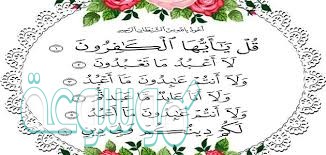 أعوذ بالله من الشيطان الرجيم
قُلْ يَـٰٓأَيُّهَا ٱلْكَـٰفِرُونَ ١
لَآ أَعْبُدُ مَا تَعْبُدُونَ
وَلَآ أَنتُمْ عَـٰبِدُونَ مَآ أَعْبُدُ
وَلَآ أَنَا۠ عَابِدٌ مَّا
وَلَآ أَنتُمْ عَـٰبِدُونَ مَآ أَعْبُدُ
لَكُمْ دِينُكُمْ دِينِ
موسوعة